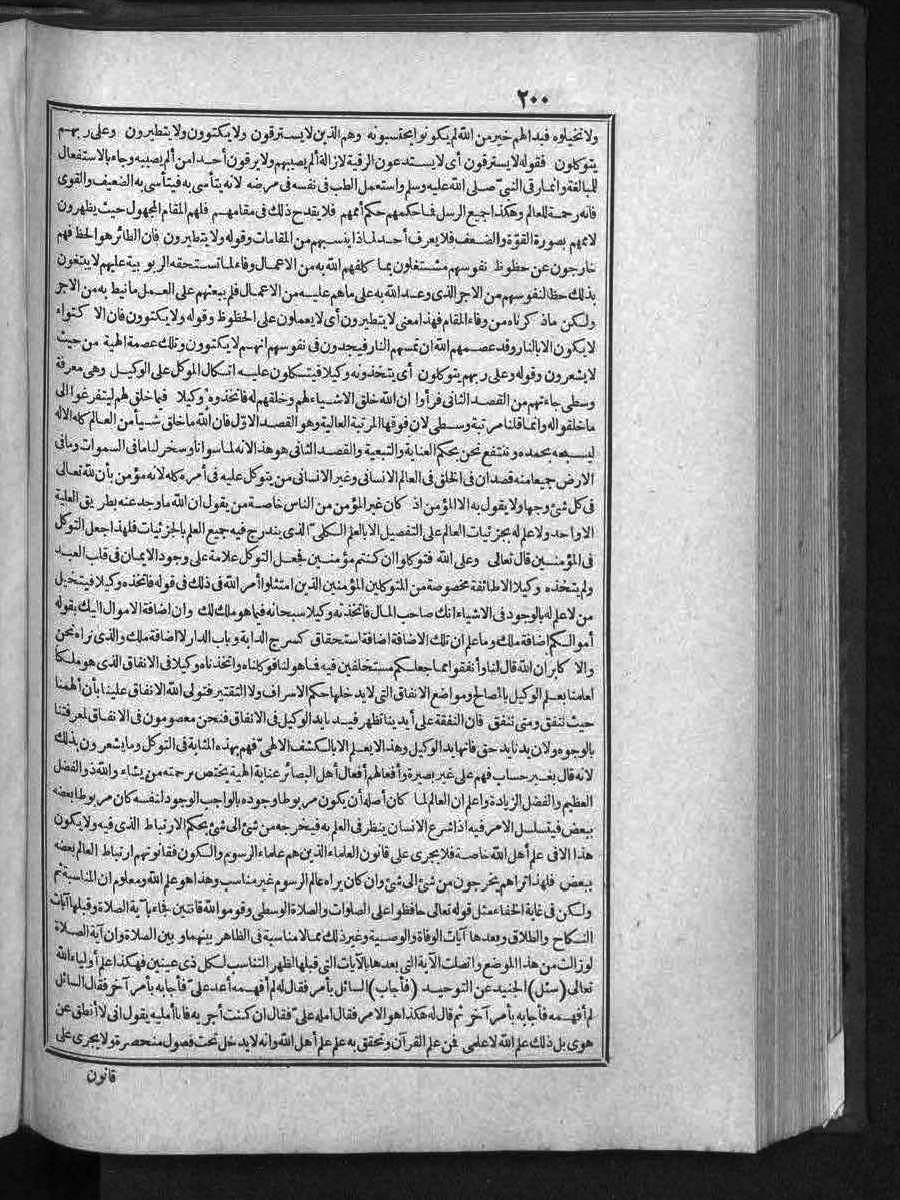 ٢٠٠
ولا تخيلوه فبدا لهم خير من الله لم يكونوا يحتسبونه وهم الذين لا يسترقون ولا يكتوون ولا يتطيرون وعلى ربهم
يتوكلون فقوله لا يسترقون أى لا يستدعون الرقية لازالة ألم يصيبهم ولا يرقون أحدا من ألم يصيبه وجاء بالاستفعال
للمبالغة وانما رقى النبىّ صلى الله عليه وسلم واستعمل الطب فى نفسه فى مرضه لانه يتأسى به فيتأسى به الضعيف والقوى
فانه رحمة للعالم وهكذا جميع الرسل فاحكمهم حكم أممهم فلا يقدح ذلك فى مقامهم فلهم المقام المجهول حيث يظهرون
لاممهم بصورة القوّة والضعف فلا يعرف أحد لماذا ينسبهم من المقامات وقوله ولا يتطيرون فان الطائر هو الحظ فهم
خارجون عن حظوظ نفوسهم مشتغلون بما كلفهم الله به من الاعمال وفاء لما تستحقه الربوبية عليهم لا يبتغون
بذلك حظا لنفوسهم من الاجر الذى وعد الله به على ماهم عليه من الاعمال فلم يبعثهم على العمل ما نيط به من الاجر
ولكن ماذكرناه من وفاء المقام فهذا معنى لا يتطيرون أى لا يعملون على الحظوظ وقوله ولا يكتوون فان الاكتواء
لا يكون الا بالنار وقد عصمهم الله ان تمسهم النار فيجدون فى نفوسهم انهم لا يكتوون وتلك عصمة الهية من حيث
لا يشعرون وقوله وعلى ربهم يتوكلون أى يتخذونه وكيلا فيتكلون عليه اتكال الموكل على الوكيل وهى معرفة
وسطى جاءتهم من القصد الثانى فرأوا ان الله خلق الاشياء لهم وخلقهم له فاتخذوه وكيلا فيما خلق لهم ليتفرغوا الى
ما خلقوا له وانما قلنا مرتبة وسطى لان فوقها المرتبة العالية وهو القصد الاوّل فان الله ما خلق شيأ من العالم كله الا له
ليسبحه بحمده وننتفع نحن بحكم العناية والتبعية والقصد الثانى هو هذا لانه لما سوانا وسخر لنا مافى السموات ومافى
الارض جميعا منه قصدان فى الخلق فى العالم الانسانى وغير الانسانى من يتوكل عليه فى أمره كله لانه مؤمن بأن لله تعالى
فى كل شئ وجها ولا يقول به الا المؤمن اذ كان غير المؤمن من الناس خاصة من يقول ان الله ما وجد عنه بطريق العلية
الا واحد ولا علم له بجزئيات العالم على التفصيل الا بالعلم الكلىّ الذى يندرج فيه جميع العلم بالجزئيات فلهذا جعل التوكل
فى المؤمنين قال تعالى وعلى الله فتوكلوا ان كنتم مؤمنين فجعل التوكل علامة على وجود الايمان فى قلب العبد
ولم يتخذه وكيلا الا طائفة مخصوصة من المتوكلين المؤمنين الذين امتثلوا أمر الله فى ذلك فى قوله فاتخذه وكيلا فيتخيل
من لا علم له بالوجود فى الاشياء انك صاحب المال فاتخذته وكيلا سبحانه فيما هو ملك لك وان اضافة الاموال اليك بقوله
أموالكم اضافة ملك وما علم ان تلك الاضافة اضافة استحقاق كسرج الدابة وباب الدار لا اضافة ملك والذى نراه نحن
والاكابر ان الله قال لنا وأنفقوا مما جعلكم مستخلفين فيه فما هو لنا فوكلناه واتخذناه وكيلا فى الانفاق الذى هو ملكا
لعلمنا بعلم الوكيل بالمصالح ومواضع الانفاق التى لا يدخلها حكم الاسراف ولا التقتير فتولى الله الانفاق علينا بأن ألهمنا
حيث ننفق ومتى ننفق فان النفقة على أيدينا تظهر فيدنا يد الوكيل فى الانفاق فنحن معصومون فى الانفاق لمعرفتنا
بالوجوه ولان يدنا يد حق فانها يد الوكيل وهذا لا يعلم الا بالكشف الالهىّ فهم بهذه المثابة فى التوكل وما يشعرون بذلك
لانه قال بغير حساب فهم على غير بصيرة وأفعالهم أفعال أهل البصائر عناية الهية يختص برحمته من يشاء والله ذو الفضل
العظيم والفضل الزيادة واعلم ان العالم لما كان أصله أن يكون مربوطا وجوده بالواجب الوجود لنفسه كان مربوطا بعضه
ببعض فيتسلسل الامر فيه اذا شرع الانسان ينظر فى العلم به فيخرجه من شئ الى شئ بحكم الارتباط الذى فيه ولا يكون
هذا الا فى علم أهل الله خاصة فلا يجرى على قانون العلماء الذين هم علماء الرسوم والكون فقانونهم ارتباط العالم بعضه
ببعض فلهذا تراهم يخرجون من شئ الى شئ وان كان يراه عالم الرسوم غير مناسب وهذا هو علم الله ومعلوم ان المناسبة ثم
ولكن فى غاية الخفاء مثل قوله تعالى حافظوا على الصلوات والصلاة الوسطى وقوموا لله قانتين فجاء بآية الصلاة وقبلها آيات
النكاح والطلاق وبعدها آيات الوفاة والوصية وغير ذلك مما لا مناسبة فى الظاهر بينهما وبين الصلاة وان آية الصلاة
لو زالت من هذا الموضع واتصلت الآية التى بعدها بالآيات التى قبلها لظهر التناسب لكل ذى عينين فهكذا علم أولياء الله
تعالى (سئل) الجنيد عن التوحيد (فأجاب) السائل بأمر فقال له لم أفهمه أعد علىّ فأجابه بأمر آخر فقال السائل
لم أفهمه فأجابه بأمر آخر ثم قال له هكذا هو الامر فقال امله علىّ فقال ان كنت أجريه فانا أمليه يقول انى لا أنطق عن
هوى بل ذلك علم الله لا علمى فمن علم القرآن وتحقق به علم علم أهل الله وانه لا يدخل تحت فصول منحصرة ولا يجرى على
قانون